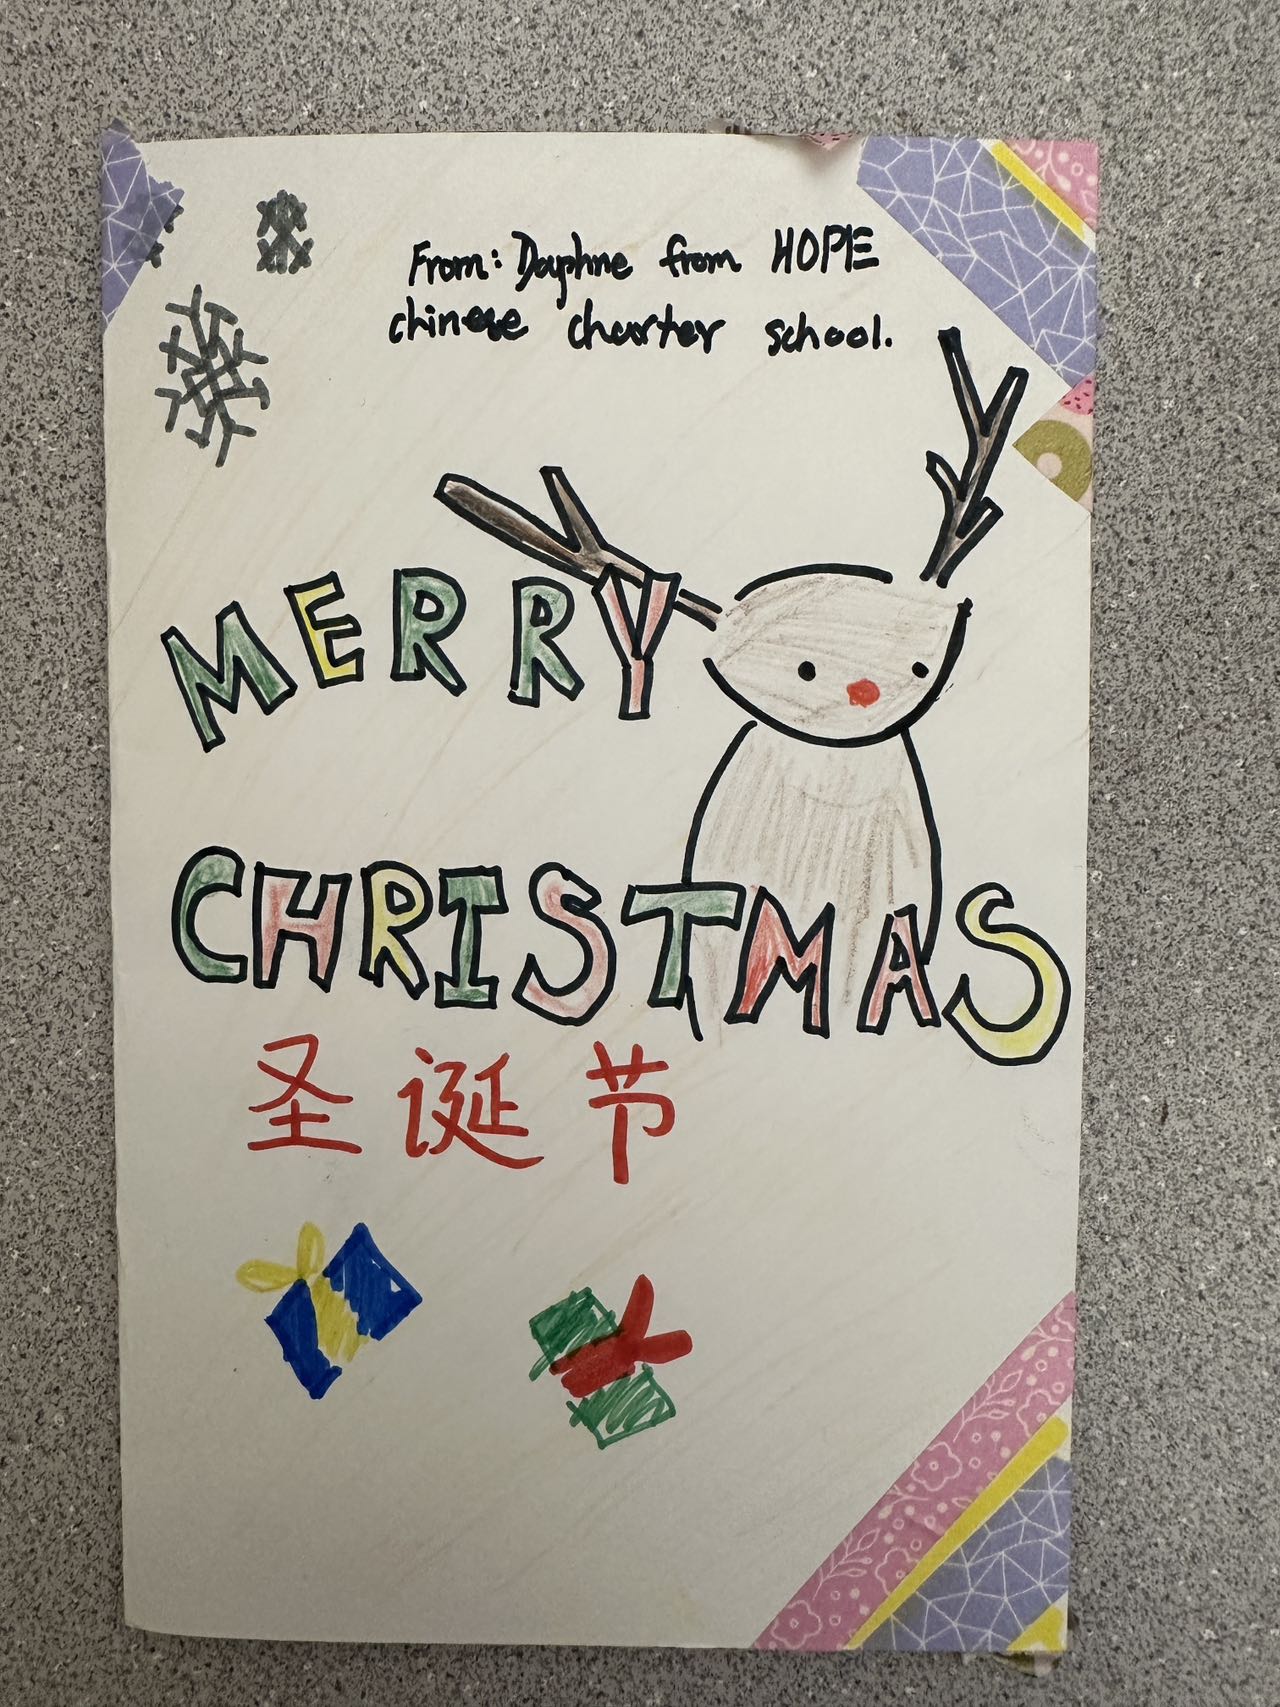 From: Daphne from HOPE
chinese charter school.
MERRY
CHRISTMAS
圣诞节